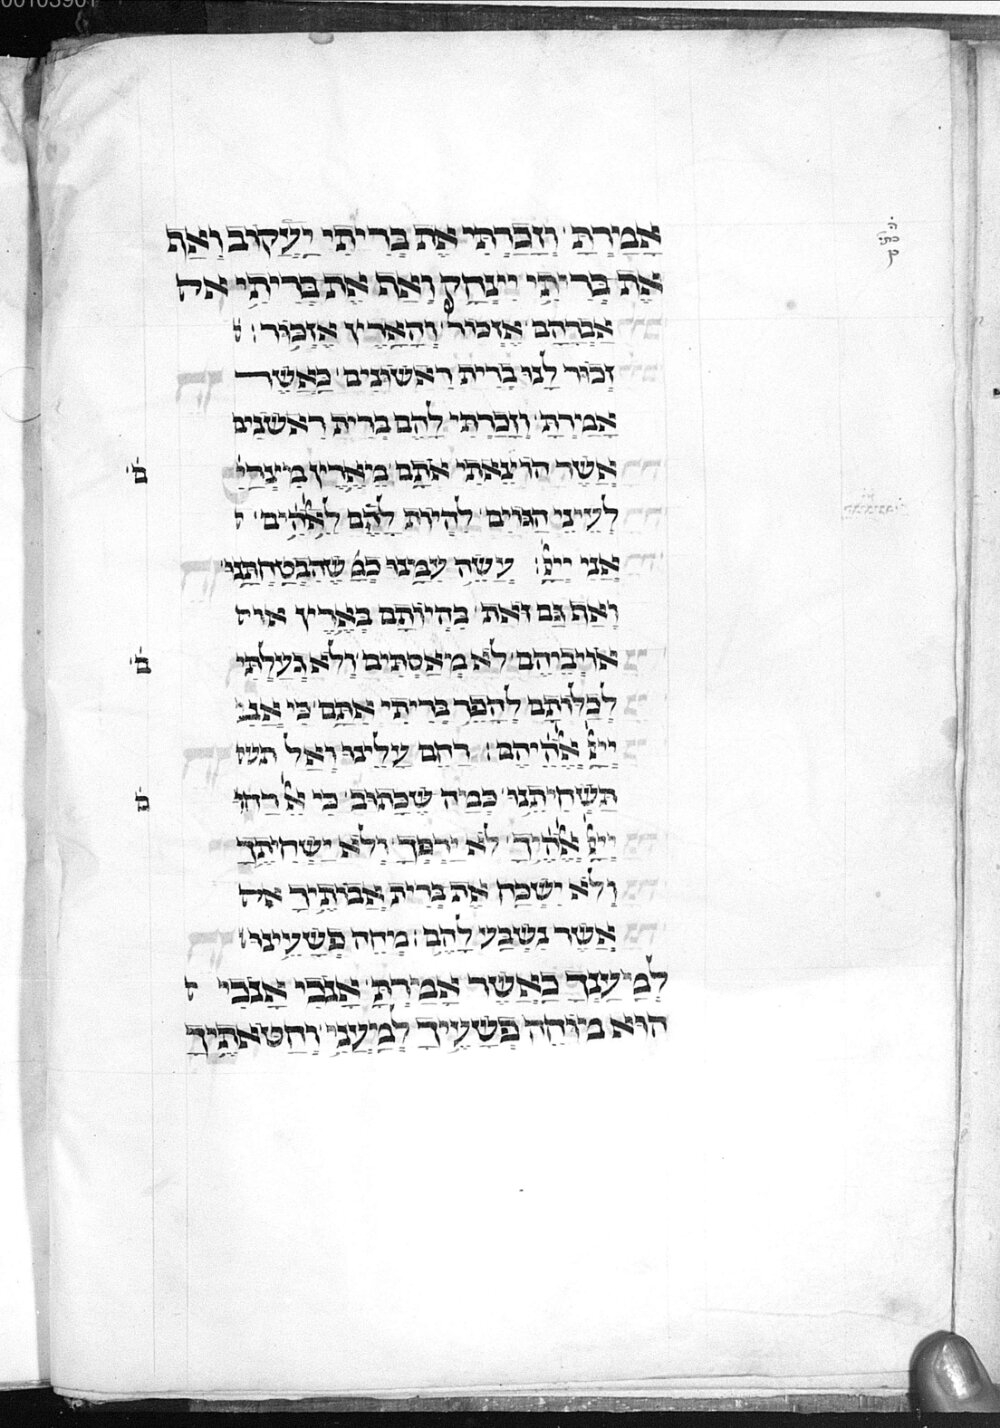 אָמַרְתָּ וְזָכַרְתִּי אֶת בְּרִיתִי יַעֲקוֹב וְאַף
אֶת בְּרִיתִי יִצְחָק וְאַף אֶת בְּרִיתִי את
אַבְרָהָם אֶזְכּוֹר וְהָאָרֶץ אֶזְכּוֹר׃
זְכוֹר לָנוּ בְּרִית רִאשׁוֹנִים כַּאֲשֶׁר
אָמַרְתָּ וְזָכַרְתִּי לָהֶם בְּרִית רִאשֹׁנִים
אֲשֶׁר הוֹצֵאתִי אֹתָם מֵאֶרֶץ מִצְרַיִ
ם
לְעֵינֵי הַגּוֹיִם לִהְיוֹת לָהֶם לֵאלֹהִים
אֲנִי יְיָ׃ עֲשֵׂה עִמָּנוּ כְּמָ שֶׁהִבְטַחְתָּנוּ
וְאַף גַּם זֹאת בִּהְיוֹתָם בְּאֶרֶץ אוי
אוֹיְבֵיהֶם לֹא מְאַסְתִּים וְלֹא גְעַלְתִּי
ם
לְכַלּוֹתָם לְהָפֵר בְּרִיתִי אִתָּם כִּי אֲנִי
יְיָ אֱלֹהֵיהֶם׃ רַחֵם עָלֵינוּ וְאַל תש
תַּשְׁחִיתֵנוּ כְּמָה שֶׁכָּתוּב כִּי אֵל רַחוּ
ם
יְיָ אֱלֹהֶיךָ לֹא יַרְפְּךָ וְלֹא יַשְׁחִיתֶךָ
וְלֹא יִשְׁכַּח אֶת בְּרִית אֲבוֹתֶיךָ את
אֲשֶׁר נִשְׁבַּע לָהֶם׃ מְחֵה פְשָׁעֵינוּ
לְמַעַנְךָ כַּאֲשֶׁר אָמַרְתָּ אָנֹכִי אָנֹכִי
הוּא מוֹחֶה פְשָׁעֶיךָ לְמַעֲנִי וְחַטֹּאתֶיךָ